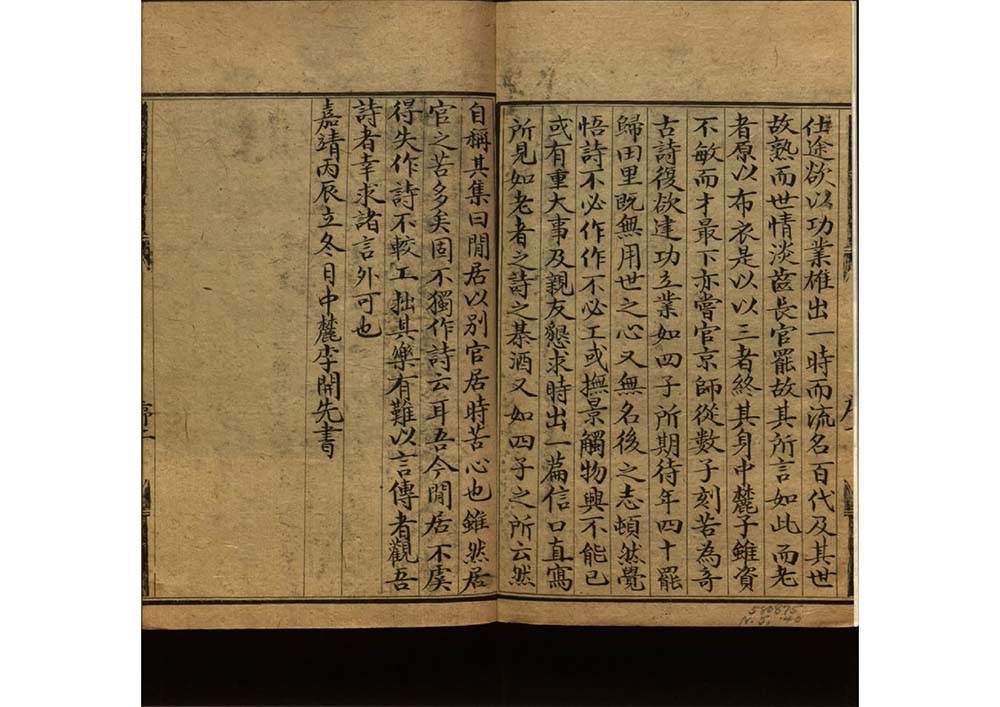 仕途欲以功業雄出一時而流名百代及其世
故熟而世情淡齒長官罷故其所言如此而老
者原以布衣是以以三者終其身中麓子雖資
不敏而才最下亦嘗官京師從數子刻苦為竒
古詩復欲建功立業如四子所期待年四十罷
歸田里既無用世之心又無名後之志頓然覺
悟詩不必作作不必工或撫景觸物興不能已
或有重大事及親友懇求時出一篇信口直寫
所見如老者之詩之棊酒又如四子之所云然
自稱其集曰閒居以别官居時苦心也雖然居
官之苦多矣固不獨作詩云耳吾今閒居不虞
得失作詩不較工拙其樂有難以言傳者觀吾
詩者幸求諸言外可也
嘉靖丙辰立冬日中麓李開先書
序二
580875
N. 5, '40